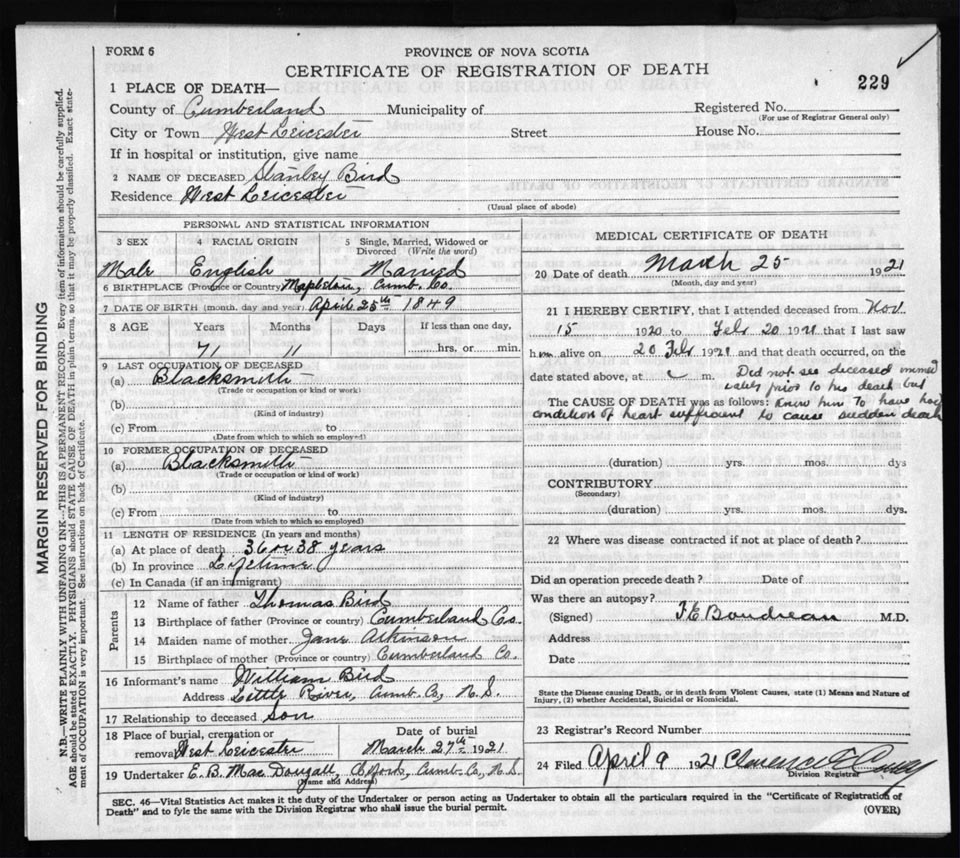 FORM 6
PROVINCE OF NOVA SCOTIA
CERTIFICATE OF REGISTRATION OF DEATH
229
1 PLACE OF DEATH—
County of Cumberland Municipality of Registered No.
(For use of Registrar General only)
City or Town West Leicester Street House No.
If in hospital or institution, give name
2 NAME OF DECEASED Stanley Bird
Residence West Leicester
(Usual place of abode)
MARGIN RESERVED FOR BINDING
N.B.—WRITE PLAINLY WITH UNFADING INK—THIS IS A PERMANENT RECORD. Every item of information should be carefully supplied.
AGE should be stated EXACTLY. PHYSICIANS should STATE CAUSE OF DEATH in plain terms, so that it may be properly classified. Exact state-
ment of OCCUPATION is very important. See instructions on back of Certificate.
PERSONAL AND STATISTICAL INFORMATION
3 SEX 4 RACIAL ORIGIN 5 Single, Married, Widowed or
Divorced (Write the word)
Male English Married
6 BIRTHPLACE (Province or Country) Mapleton, Cumb. Co.
7 DATE OF BIRTH (month, day and year) April 25th 1849
8 AGE Years Months Days If less than one day,
71 11 hrs, or min.
9 LAST OCCUPATION OF DECEASED
(a) Blacksmith
(Trade or occupation or kind of work)
(b)
(Kind of industry)
(c) From to
(Date from which to which so employed)
10 FORMER OCCUPATION OF DECEASED
(a) Blacksmith
(Trade or occupation or kind of work)
(b)
(Kind of industry)
(c) From to
(Date from which to which so employed)
11 LENGTH OF RESIDENCE (In years and months)
(a) At place of death 36 or 38 years
(b) In province Lifetime
(c) In Canada (if an immigrant)
Parents
12 Name of father Thomas Bird
13 Birthplace of father (Province or country) Cumberland Co.
14 Maiden name of mother Jane Atkinson
15 Birthplace of mother (Province or country) Cumberland Co.
16 Informant's name William Bird
Address Little River, Cumb. Co, N.S.
17 Relationship to deceased Son
18 Place of burial, cremation or Date of burial
removal West Leicester March 27th 1921
19 Undertaker E. B. Mac Dougall, Oxford, Cumb. Co, N.S.
(Name and Address)
MEDICAL CERTIFICATE OF DEATH
20 Date of death March 25 1921
(Month, day and year)
21 I HEREBY CERTIFY, that I attended deceased from Nov.
15 1920 to Febr 20 1921 that I last saw
him alive on 20 Febr 1921 and that death occurred, on the
date stated above, at m. Did not see deceased immed
iately prior to his death but
The CAUSE OF DEATH was as follows: knew him to have had
condition of heart sufficient to cause sudden death
(duration) yrs. mos. dys
CONTRIBUTORY
(Secondary)
(duration) yrs. mos. dys.
22 Where was disease contracted if not at place of death?
Did an operation precede death? Date of
Was there an autopsy?
(Signed) F.E. Boudreau M.D.
Address
Date
State the Disease causing Death, or in death from Violent Causes, state (1) Means and Nature of
Injury, (2) whether Accidental, Suicidal or Homicidal.
23 Registrar's Record Number
24 Filed April 9 1921 Clarence
Division Registrar
SEC. 46—Vital Statistics Act makes it the duty of the Undertaker or person acting as Undertaker to obtain all the particulars required in the "Certificate of Registration of
Death" and to fyle the same with the Division Registrar who shall issue the burial permit.
(OVER)